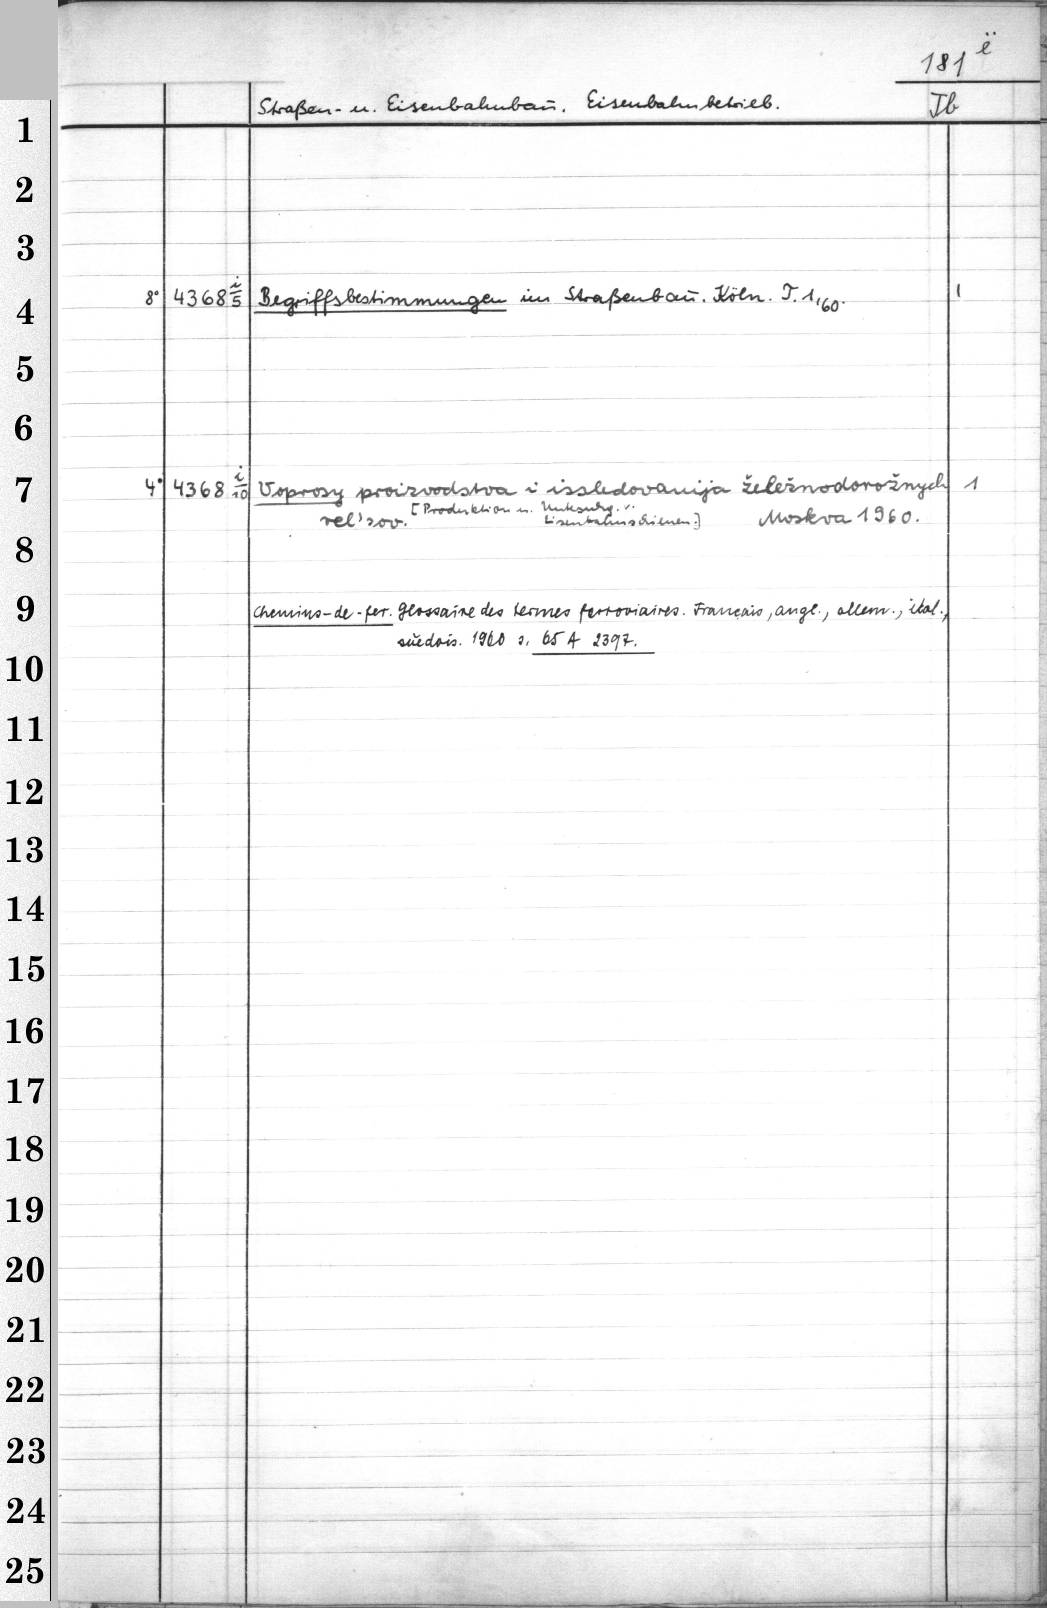 181 ë
Straßen- u. Eisenbahnbau. Eisenbahnbetrieb. Ib
1
2
3
8° 4368 i/5 Begriffsbestimmungen im Straßenbau. Köln. T. 1,/60. 1
4
5
6
7 4° 4368 i/10 Voprosy proizvodstva i issledovanija želežnodorožnych 1
[Produktion u. Untersuchg. v.
rel'sov. Eisenbahnschienen.] Moskva 1960.
8
9 Chemins-de-fer. Glossaire des termes ferroviaires. Français, angl., allem., ital.,
suédois. 1960 s. 65 A 2397.
10
11
12
13
14
15
16
17
18
19
20
21
22
23
24
25